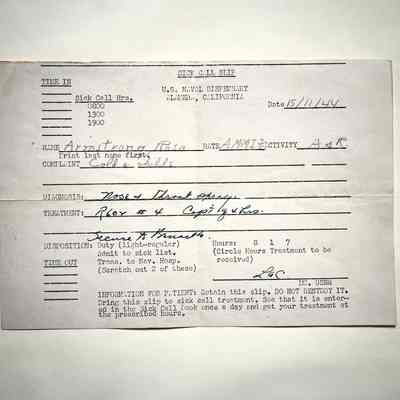 SICK CALL SLIP
TIME IN
U.S. NAVAL DISPENSARY
ALAMEDA, CALIFORNIA
Sick Call Hrs.
0800
1300
1900
Date 15/11/44
NAME Armstrong Rosa RATE ACTIVITY A & R
Print last name first.
COMPLAINT Cold & chills
DIAGNOSIS: Nose & Throat spray.
TREATMENT: # 4 Caps
DISPOSITION: Duty (light-regular)
Admit to sick list.
Trans. to Nav. Hosp.
(Scratch out 2 of these)
Hours: 8 1 7
(Circle Hours Treatment to be
received)
TIME OUT
MC. USNR
INFORMATION FOR PATIENT: Retain this slip. DO NOT DESTROY IT.
Bring this slip to sick call treatment. See that it is enter-
ed in the Sick Call Book once a day and get your treatment at
the prescribed hours.